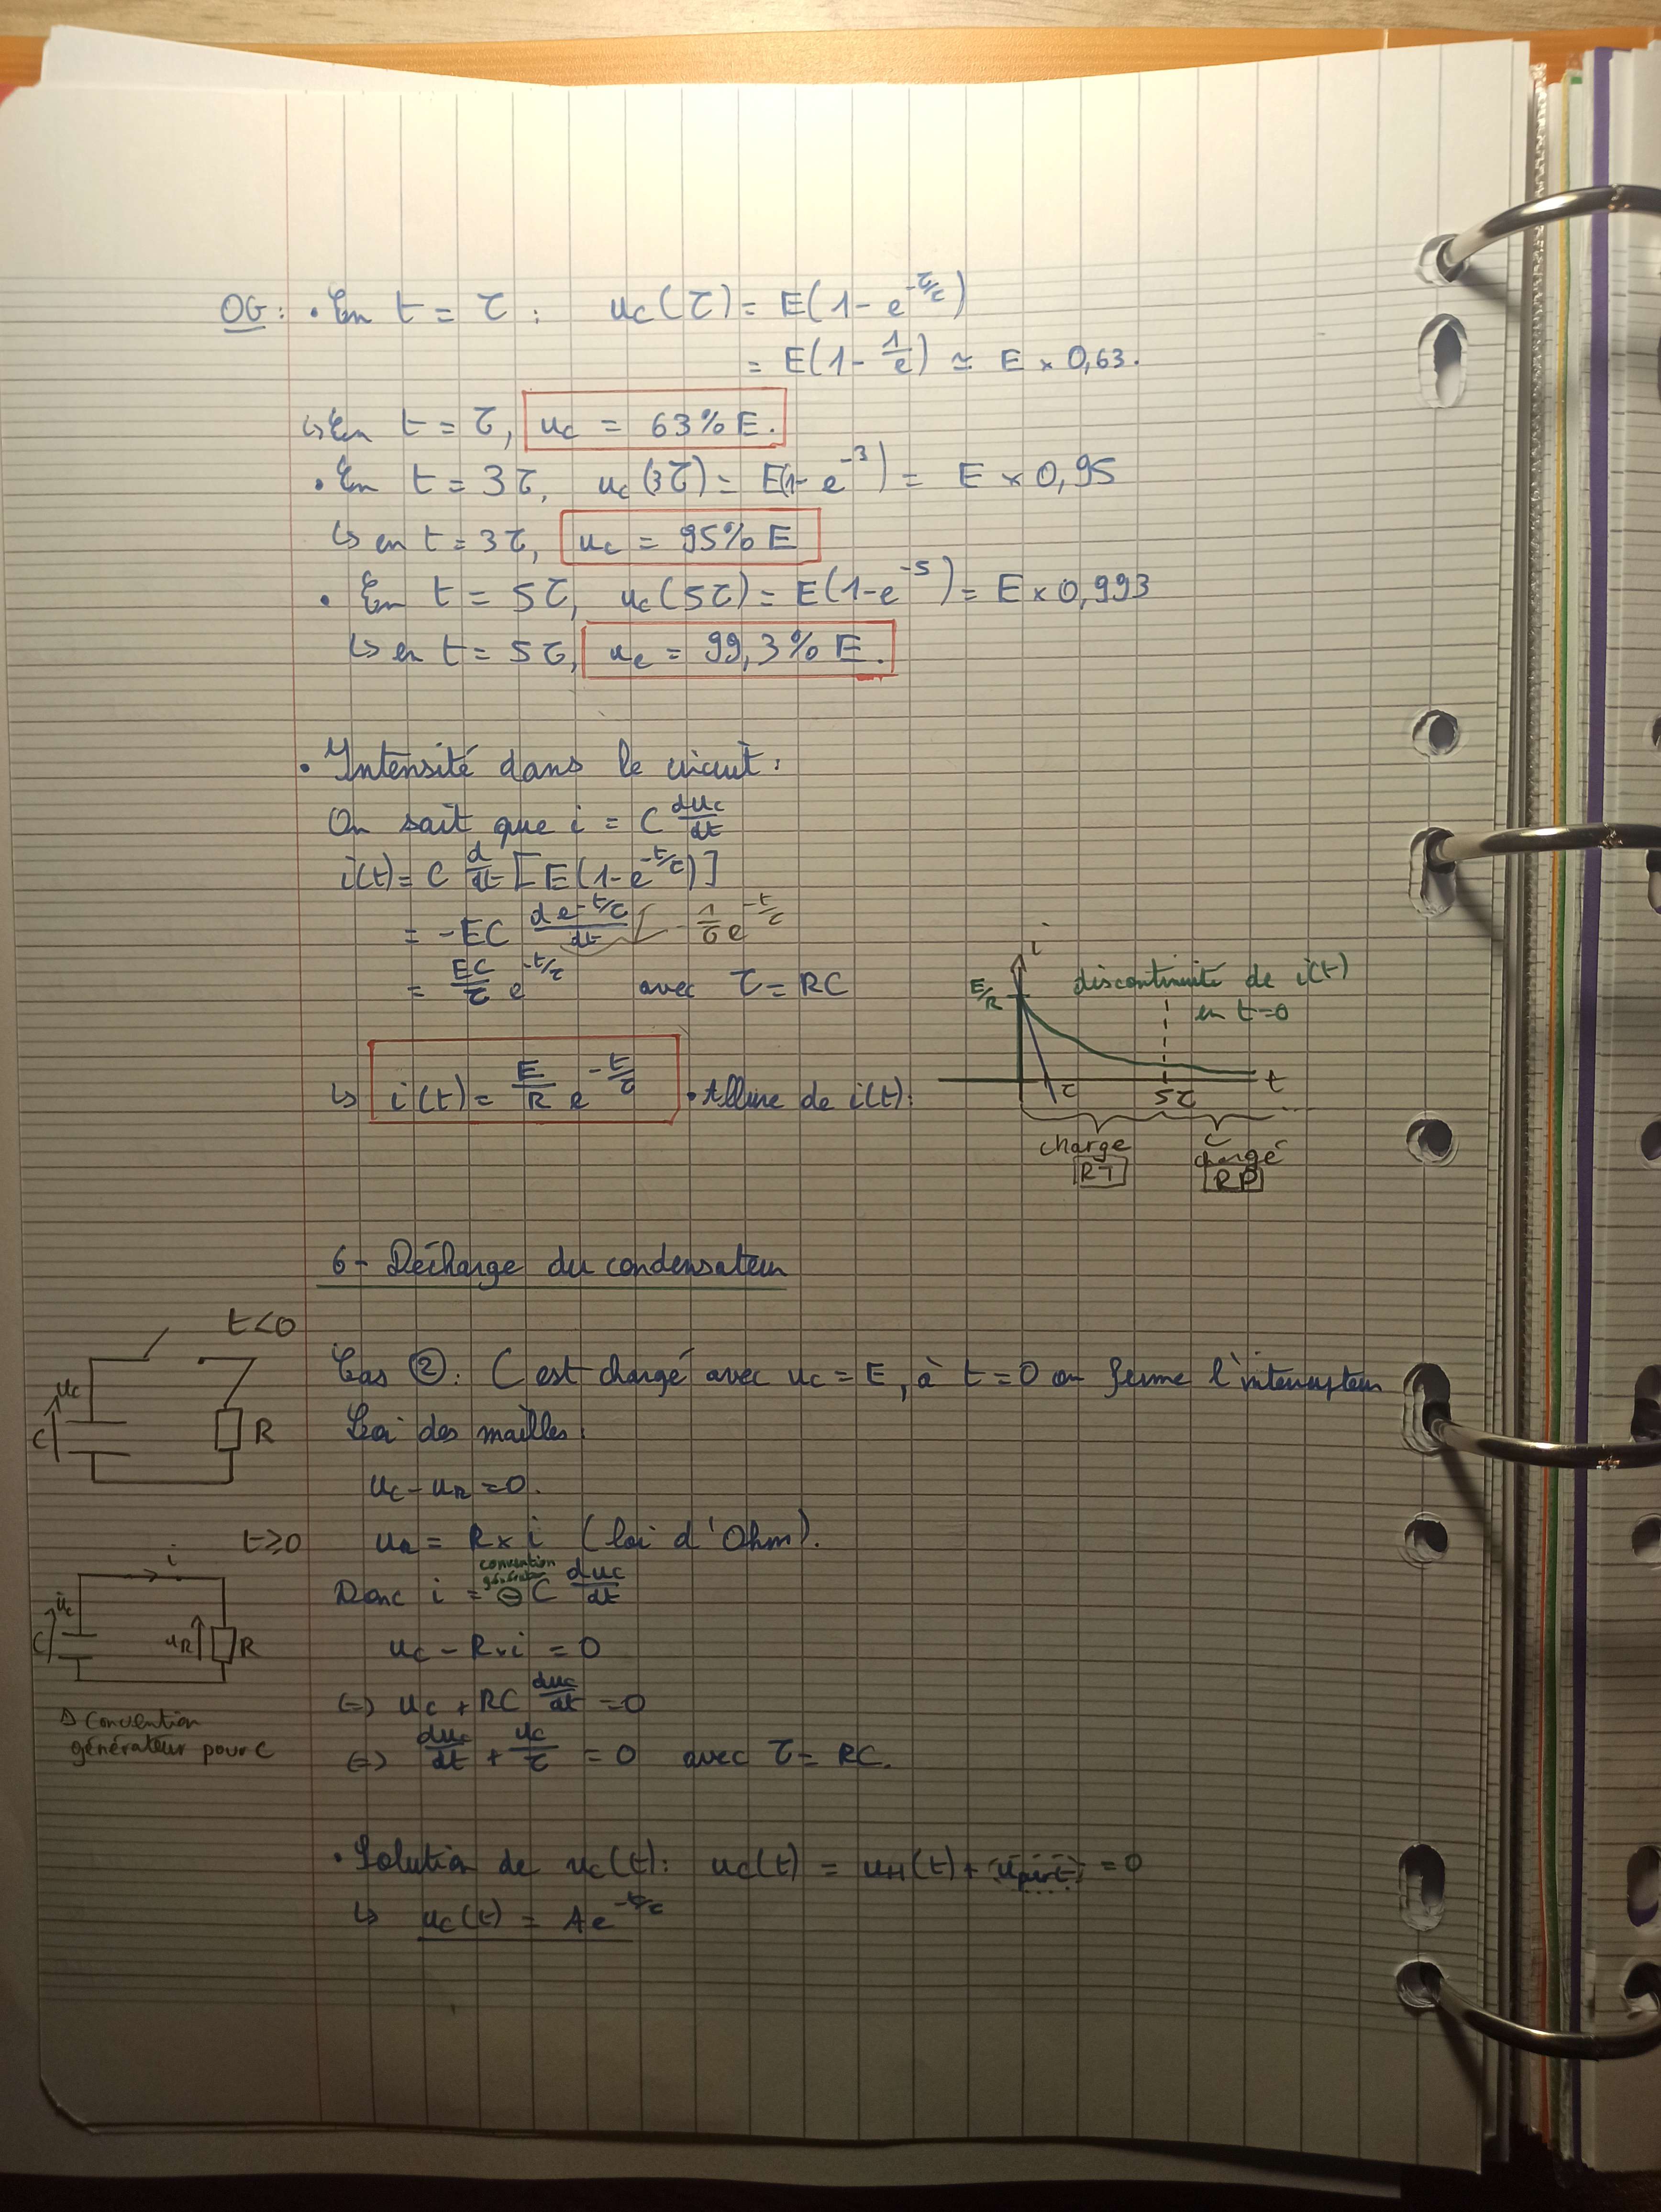 OG : • En t = τ : uc(τ) = E(1 - e^-τ/τ)
= E(1 - 1/e) ≃ E × 0,63.
↳ En t = τ, uc = 63% E.
• En t = 3τ, uc(3τ) = E(1- e^-3) = E × 0,95
↳ en t = 3τ, uc = 95% E
• En t = 5τ, uc(5τ) = E(1-e^-5) = E × 0,993
↳ en t = 5τ, uc = 99,3% E.
• Intensité dans le circuit :
On sait que i = C duc/dt
i(t) = C d/dt [E(1-e^-t/τ)]
= -EC de^-t/τ/dt -1/τ e^-t/τ
= EC/τ e^-t/τ avec τ = RC
↳ i(t) = E/R e^-t/τ • Allure de i(t) :
i
E/R
discontinuité de i(t)
en t=0
τ 5τ t
charge
RT
C
chargé
RP
6 - Décharge du condensateur
t<0
uc
C
R
Cas ②: C est chargé avec uc = E, à t = 0 on ferme l'interrupteur
Loi des mailles :
uc - uR = 0.
uR = R × i (loi d'Ohm).
convention
générateur
Donc i = ⊖ C duc/dt
uc - R×i = 0
⇔ uc + RC duc/dt = 0
⇔ duc/dt + uc/τ = 0 avec τ = RC.
t≥0
i
uc
C
uR
R
⚠ Convention
générateur pour C
• Solution de uc(t) : uc(t) = uH(t) + up(t) = 0
↳ uc(t) = Ae^-t/τ